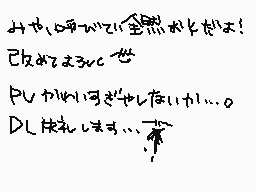 みやい呼びでい全然おKだよ!
改めてよろしく
PVかわいすぎやしないか…。
DL失礼します…